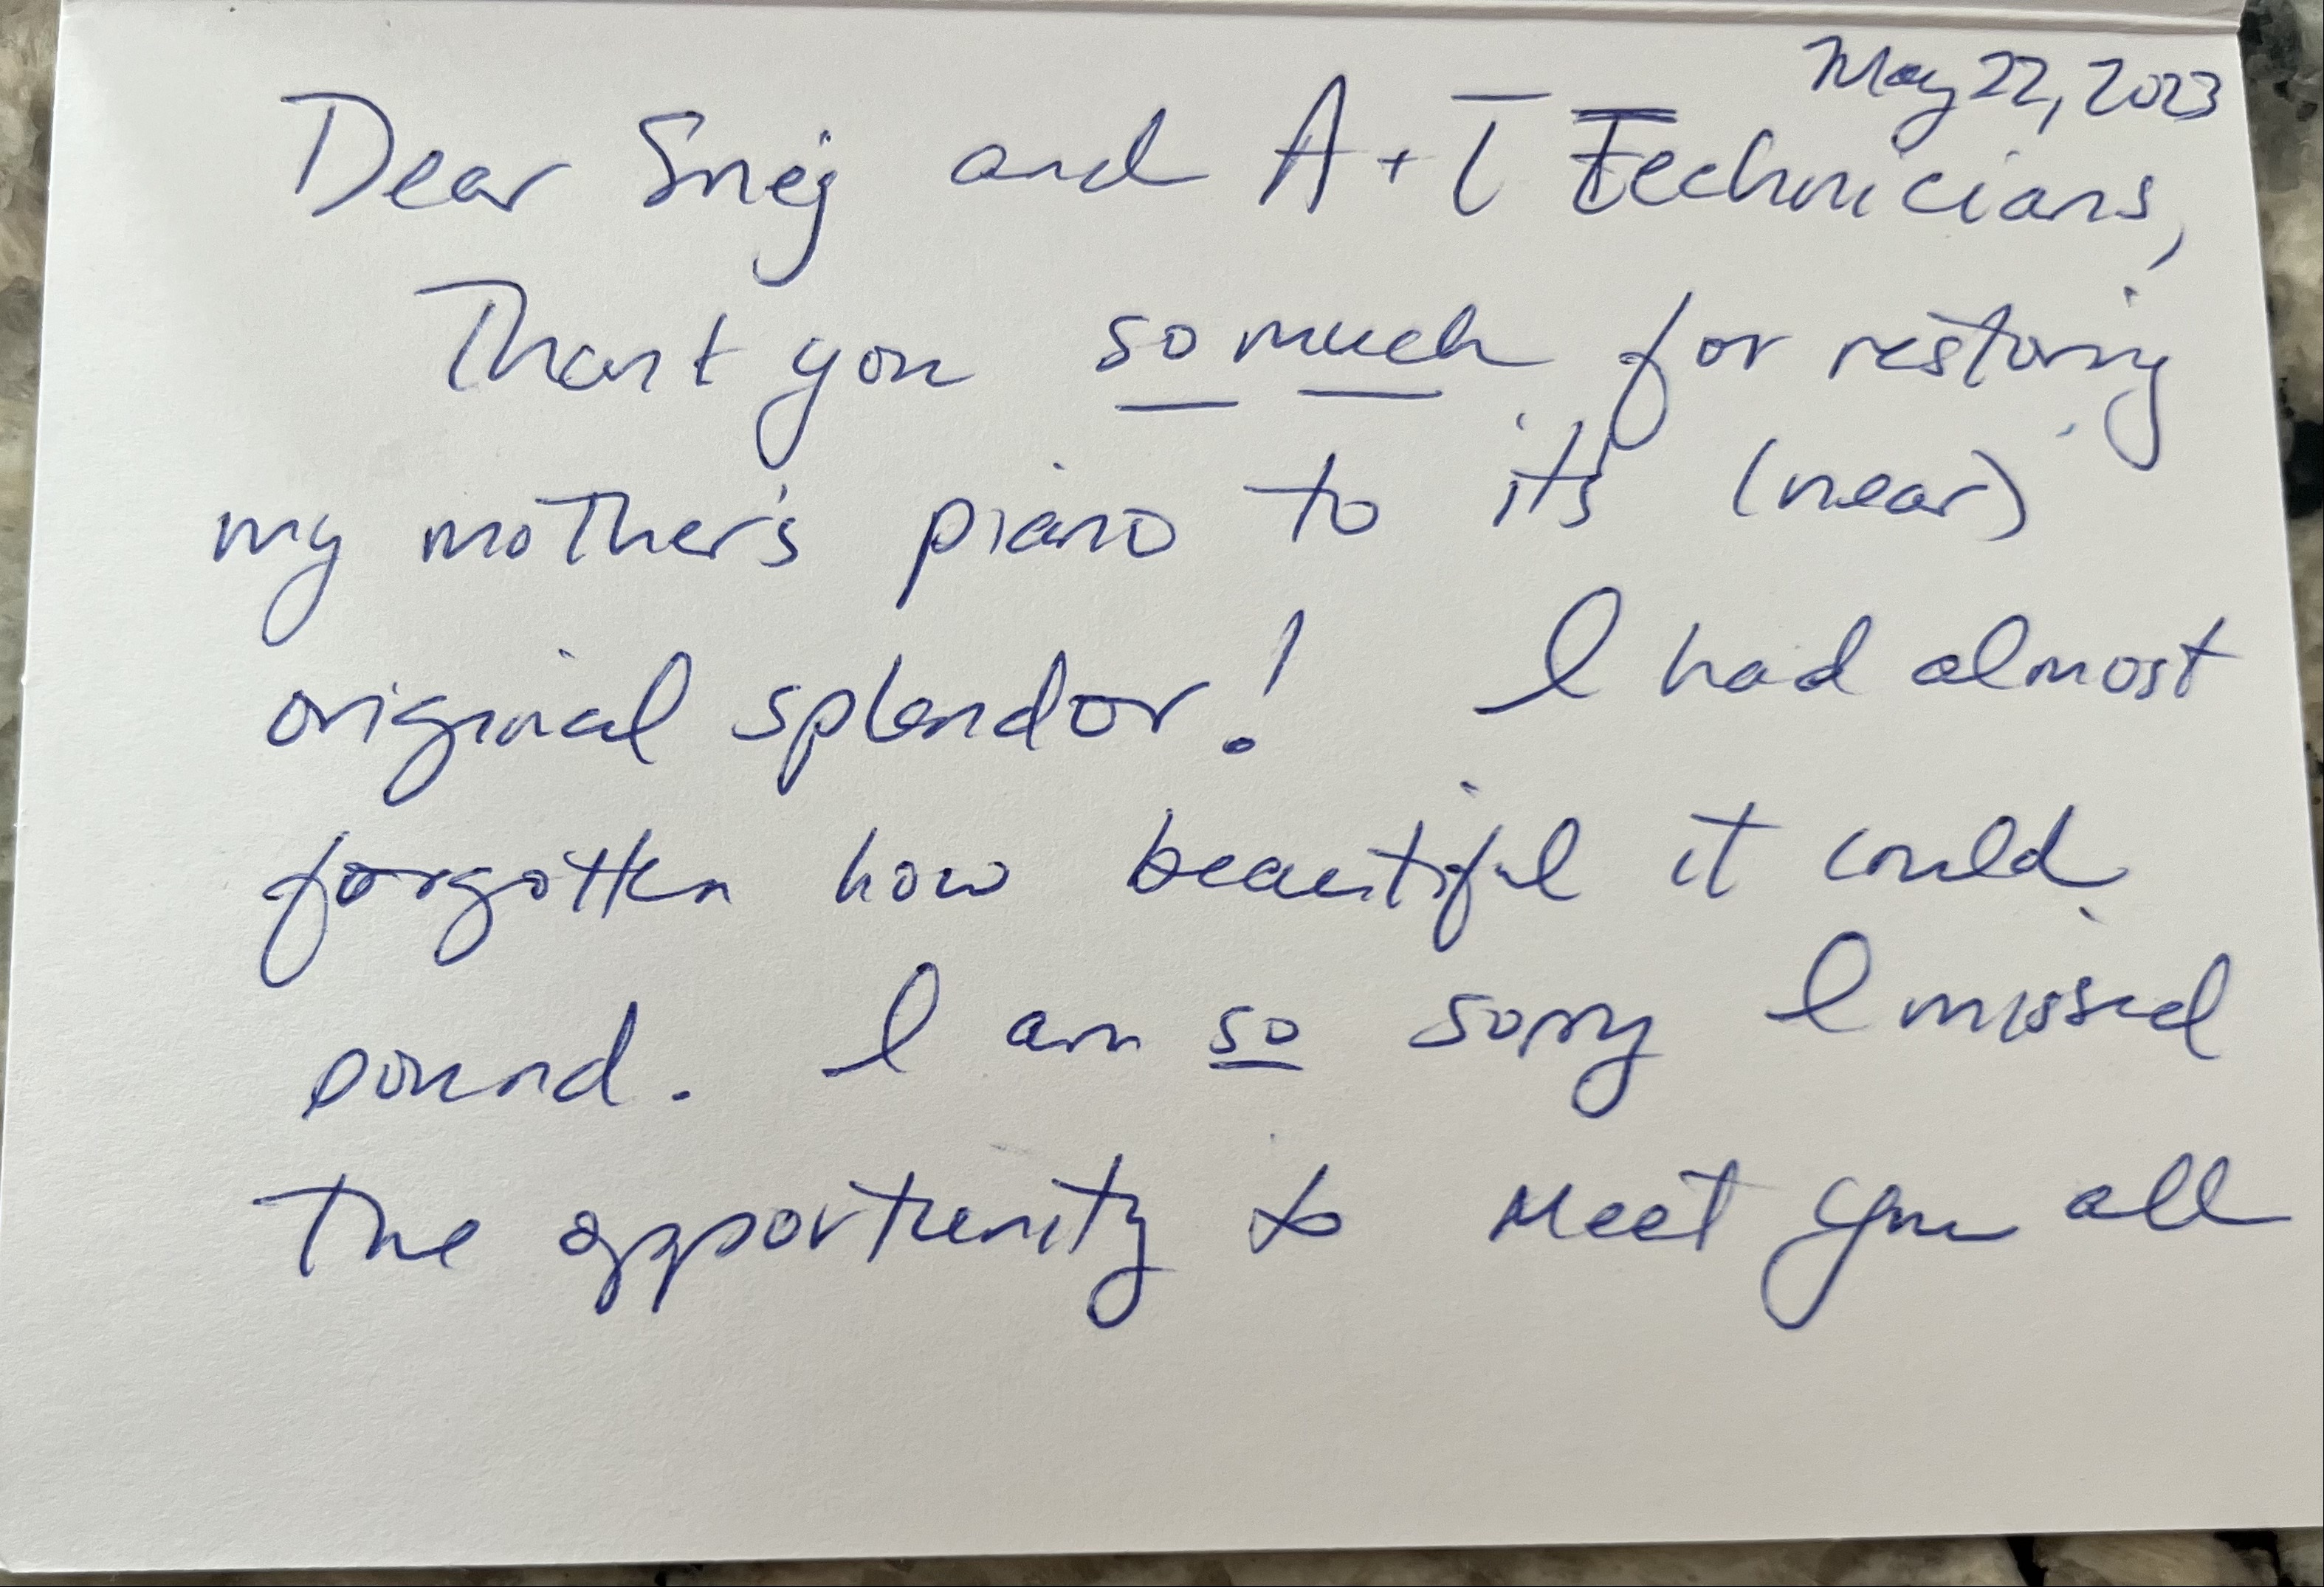 May 22, 2023
Dear Snej and A + T Technicians,
Thank you so much for restoring
my mother's piano to it's (near)
original splendor! I had almost
forgotten how beautiful it could
sound. I am so sorry I missed
the opportunity to meet you all